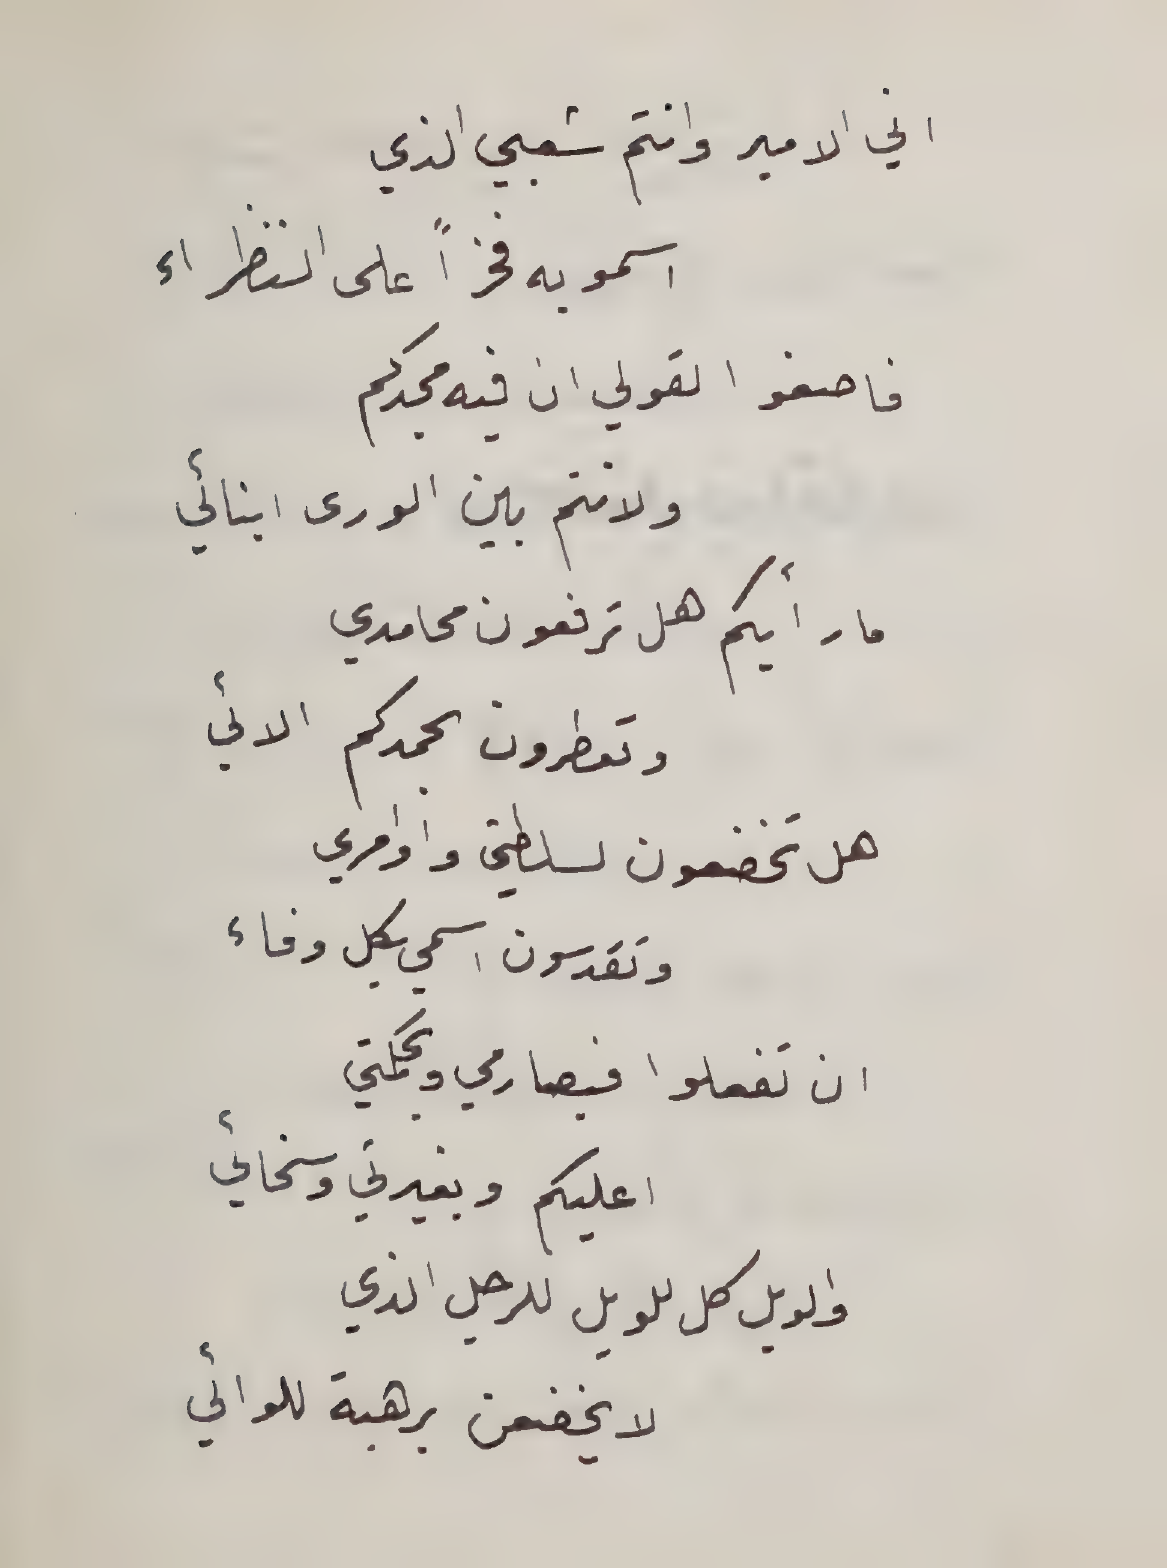 اني الامير وانتم شعبي الذي
اسمو به فخراً على النظراء
فاصغوا لقولي ان فيه مجدكم
ولانتم بين الورى ابنائي
ما رأيكم هل ترفعون محامدي
وتعطرون بحمدكم الائي
هل تخضعون لسلطتي واوامري
وتقدسون اسمي بكل وفاء
ان تفعلوا فبصارمي وبحكمتي
اعليكم وبغيرتي وسخائي
والويل كل للويل للرجل الذي
لا يخضعن برهبة للوائي